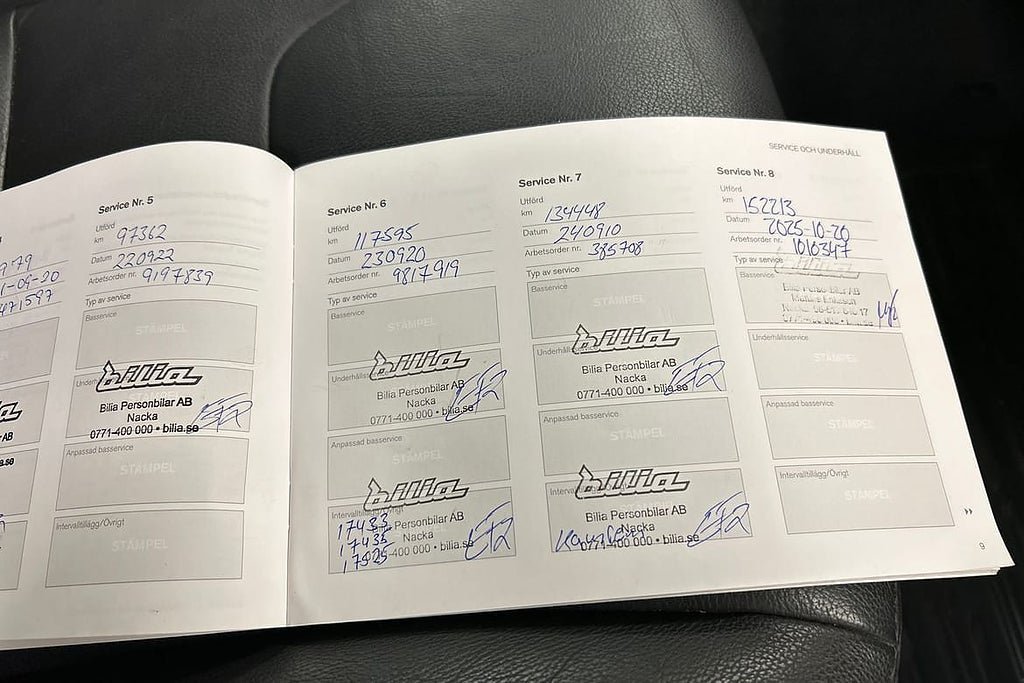 9'79
1-09-20
471597
AB
a.se
Service Nr. 5
Utförd
km 97362
Datum 220922
Arbetsorder nr. 9197839
Typ av service
Basservice
STÄMPEL
Underh
bilia
Bilia Personbilar AB
Nacka
0771-400 000 • bilia.se
Anpassad basservice
STÄMPEL
Intervalltillägg/Övrigt
STÄMPEL
Service Nr. 6
Utförd
km 117595
Datum 230920
Arbetsorder nr. 9817919
Typ av service
Basservice
STÄMPEL
Underhållsservice
bilia
Bilia Personbilar AB
Nacka
0771-400 000 • bilia.se
Anpassad basservice
STÄMPEL
bilia
Intervalltillägg/Övrigt
17433
Personbilar AB
17435
Nacka
17525
-400 000 • bilia.se
Service Nr. 7
Utförd
km 134448
Datum 240910
Arbetsorder nr. 385708
Typ av service
Basservice
STÄMPEL
Underhållsservice
bilia
Bilia Personbilar AB
Nacka
0771-400 000 • bilia.se
Anpassad basservice
STÄMPEL
Interva
bilia
Bilia Personbilar AB
Nacka
0771-400 000 • bilia.se
SERVICE OCH UNDERHÅLL
Service Nr. 8
Utförd
km 152213
Datum 2025-10-20
Arbetsorder nr. 1010347
Typ av service
Basservice
bilia
Underhållsservice
STÄMPEL
Anpassad basservice
STÄMPEL
Intervalltillägg/Övrigt
STÄMPEL
9